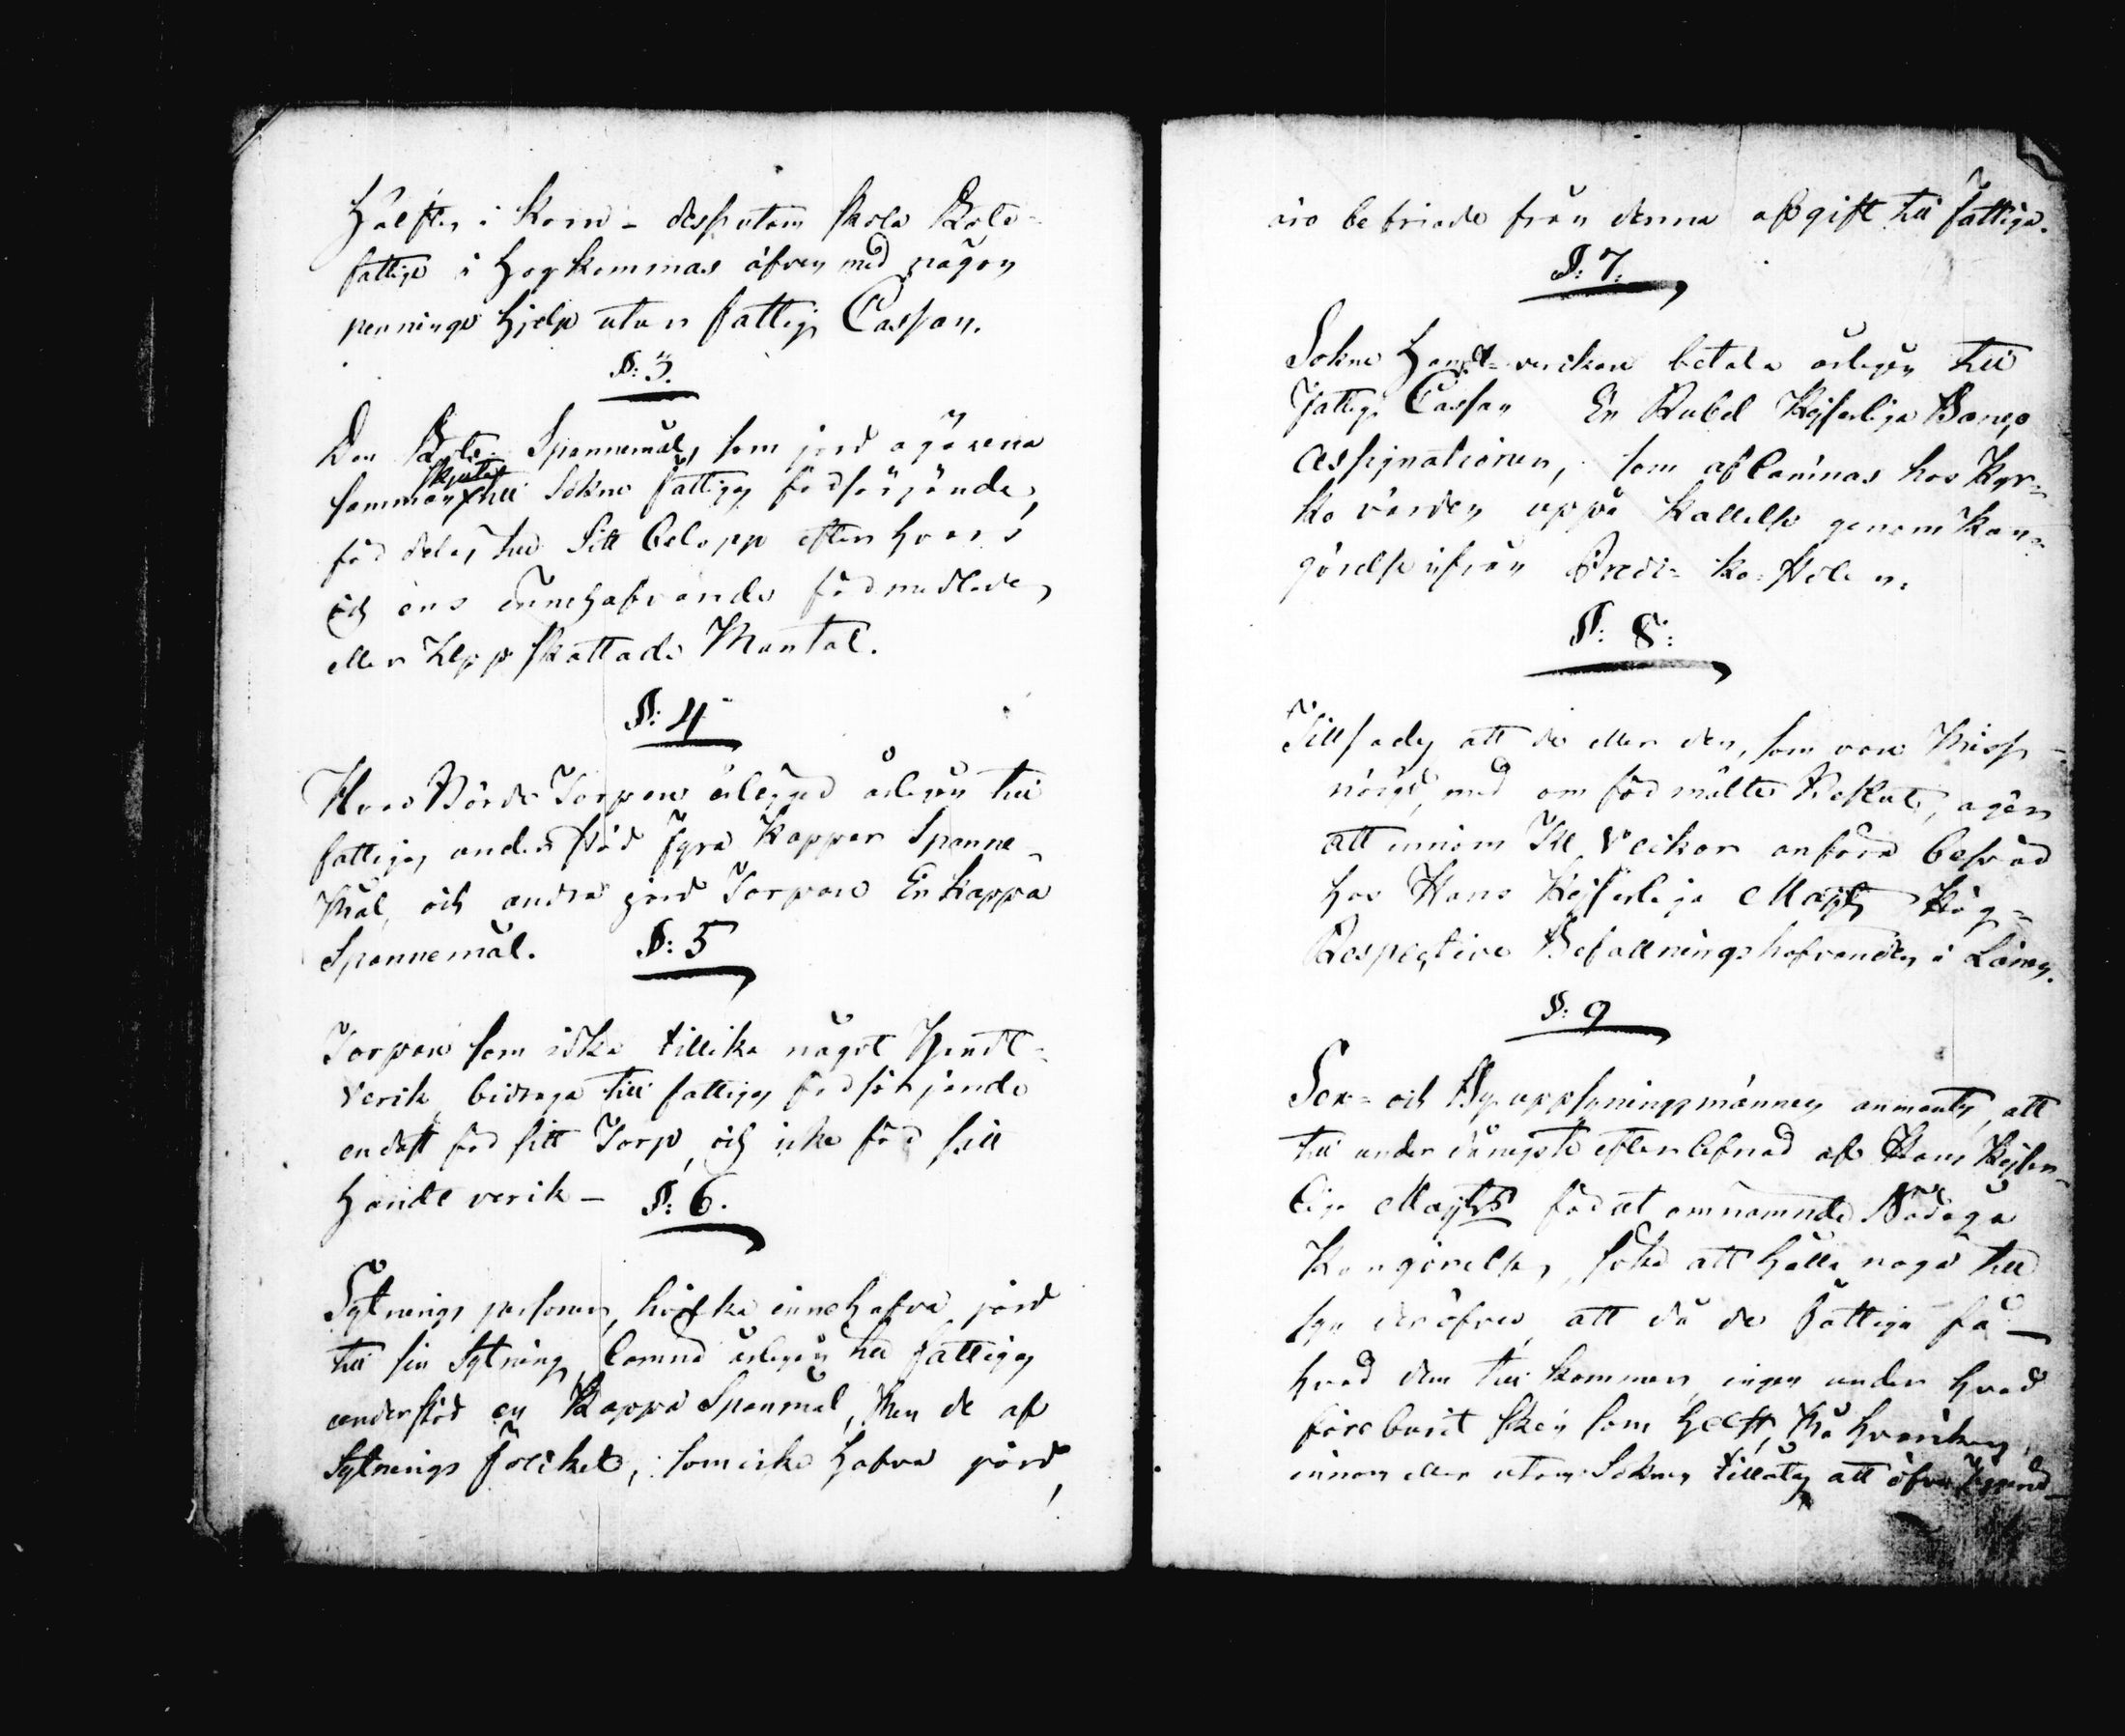 Hälften i Korn – dessutom skola Rote-
fattige i Hogkommas äfven med någon
pennings hjelp utur fattig Cassan.
§: 3.
Den Rote Spannemål, som jord ägarena
skjuta
samman till Sokne fattigas försörjande,
fördelas till sitt belopp efter hvars
och ens innehafvande förmedlade,
eller Uppskattade Mantal.
§: 4
Hvar Börds Torpare ålägges årligen till
fattigas understöd fyra Kappar Spanne-
mål, och andra jord Torpare En kappa
Spannemål.
§: 5
Torpare som idka tillika något Handt-
verk, bidraga till fattigas försörjande
endast för sitt Torp, och icke för sitt
Handtverk –
§: 6.
Sytnings personer, hvilka innehafva jord
till sin Sytning, lemna årligen till fattigas
understöd en Kappa Spanmål, Men de af
Sytnings folcket, som icke hafva jord,
äro befriade från denna afgift till fattiga.
§: 7.
Sokne Handt-verkare betala årligen till
Fattig Cassan En Rubel Kejserliga Banco
Assignationer, som aflämnas hos Kyr-
ko värden uppå Kallelse genom Kun-
görelse ifrån Predi-ko-stolen.
§: 8:
Tillsades att de eller den, som vore Miss-
nöjd, med om förmälte Beslut, ägar
att innom XII Veckor anföra besvär
hos Hans Kejserliga Majts Hög-
Respective Befallningshafvanden i Länet.
§: 9
Sex- och By uppsyningsmännen anmantes, att
till underdånigste efterlefnad af Hans Kejser-
liga Majts förut omnämnde Nådiga
Kungörelse, söka att hålla noga till
syn deröfver, att då de Fattiga få
hvad dem tillkommer, ingen under hvad
föreburit sken som helst, må hvarken
innom eller utom Soknen tillåtas att öfver